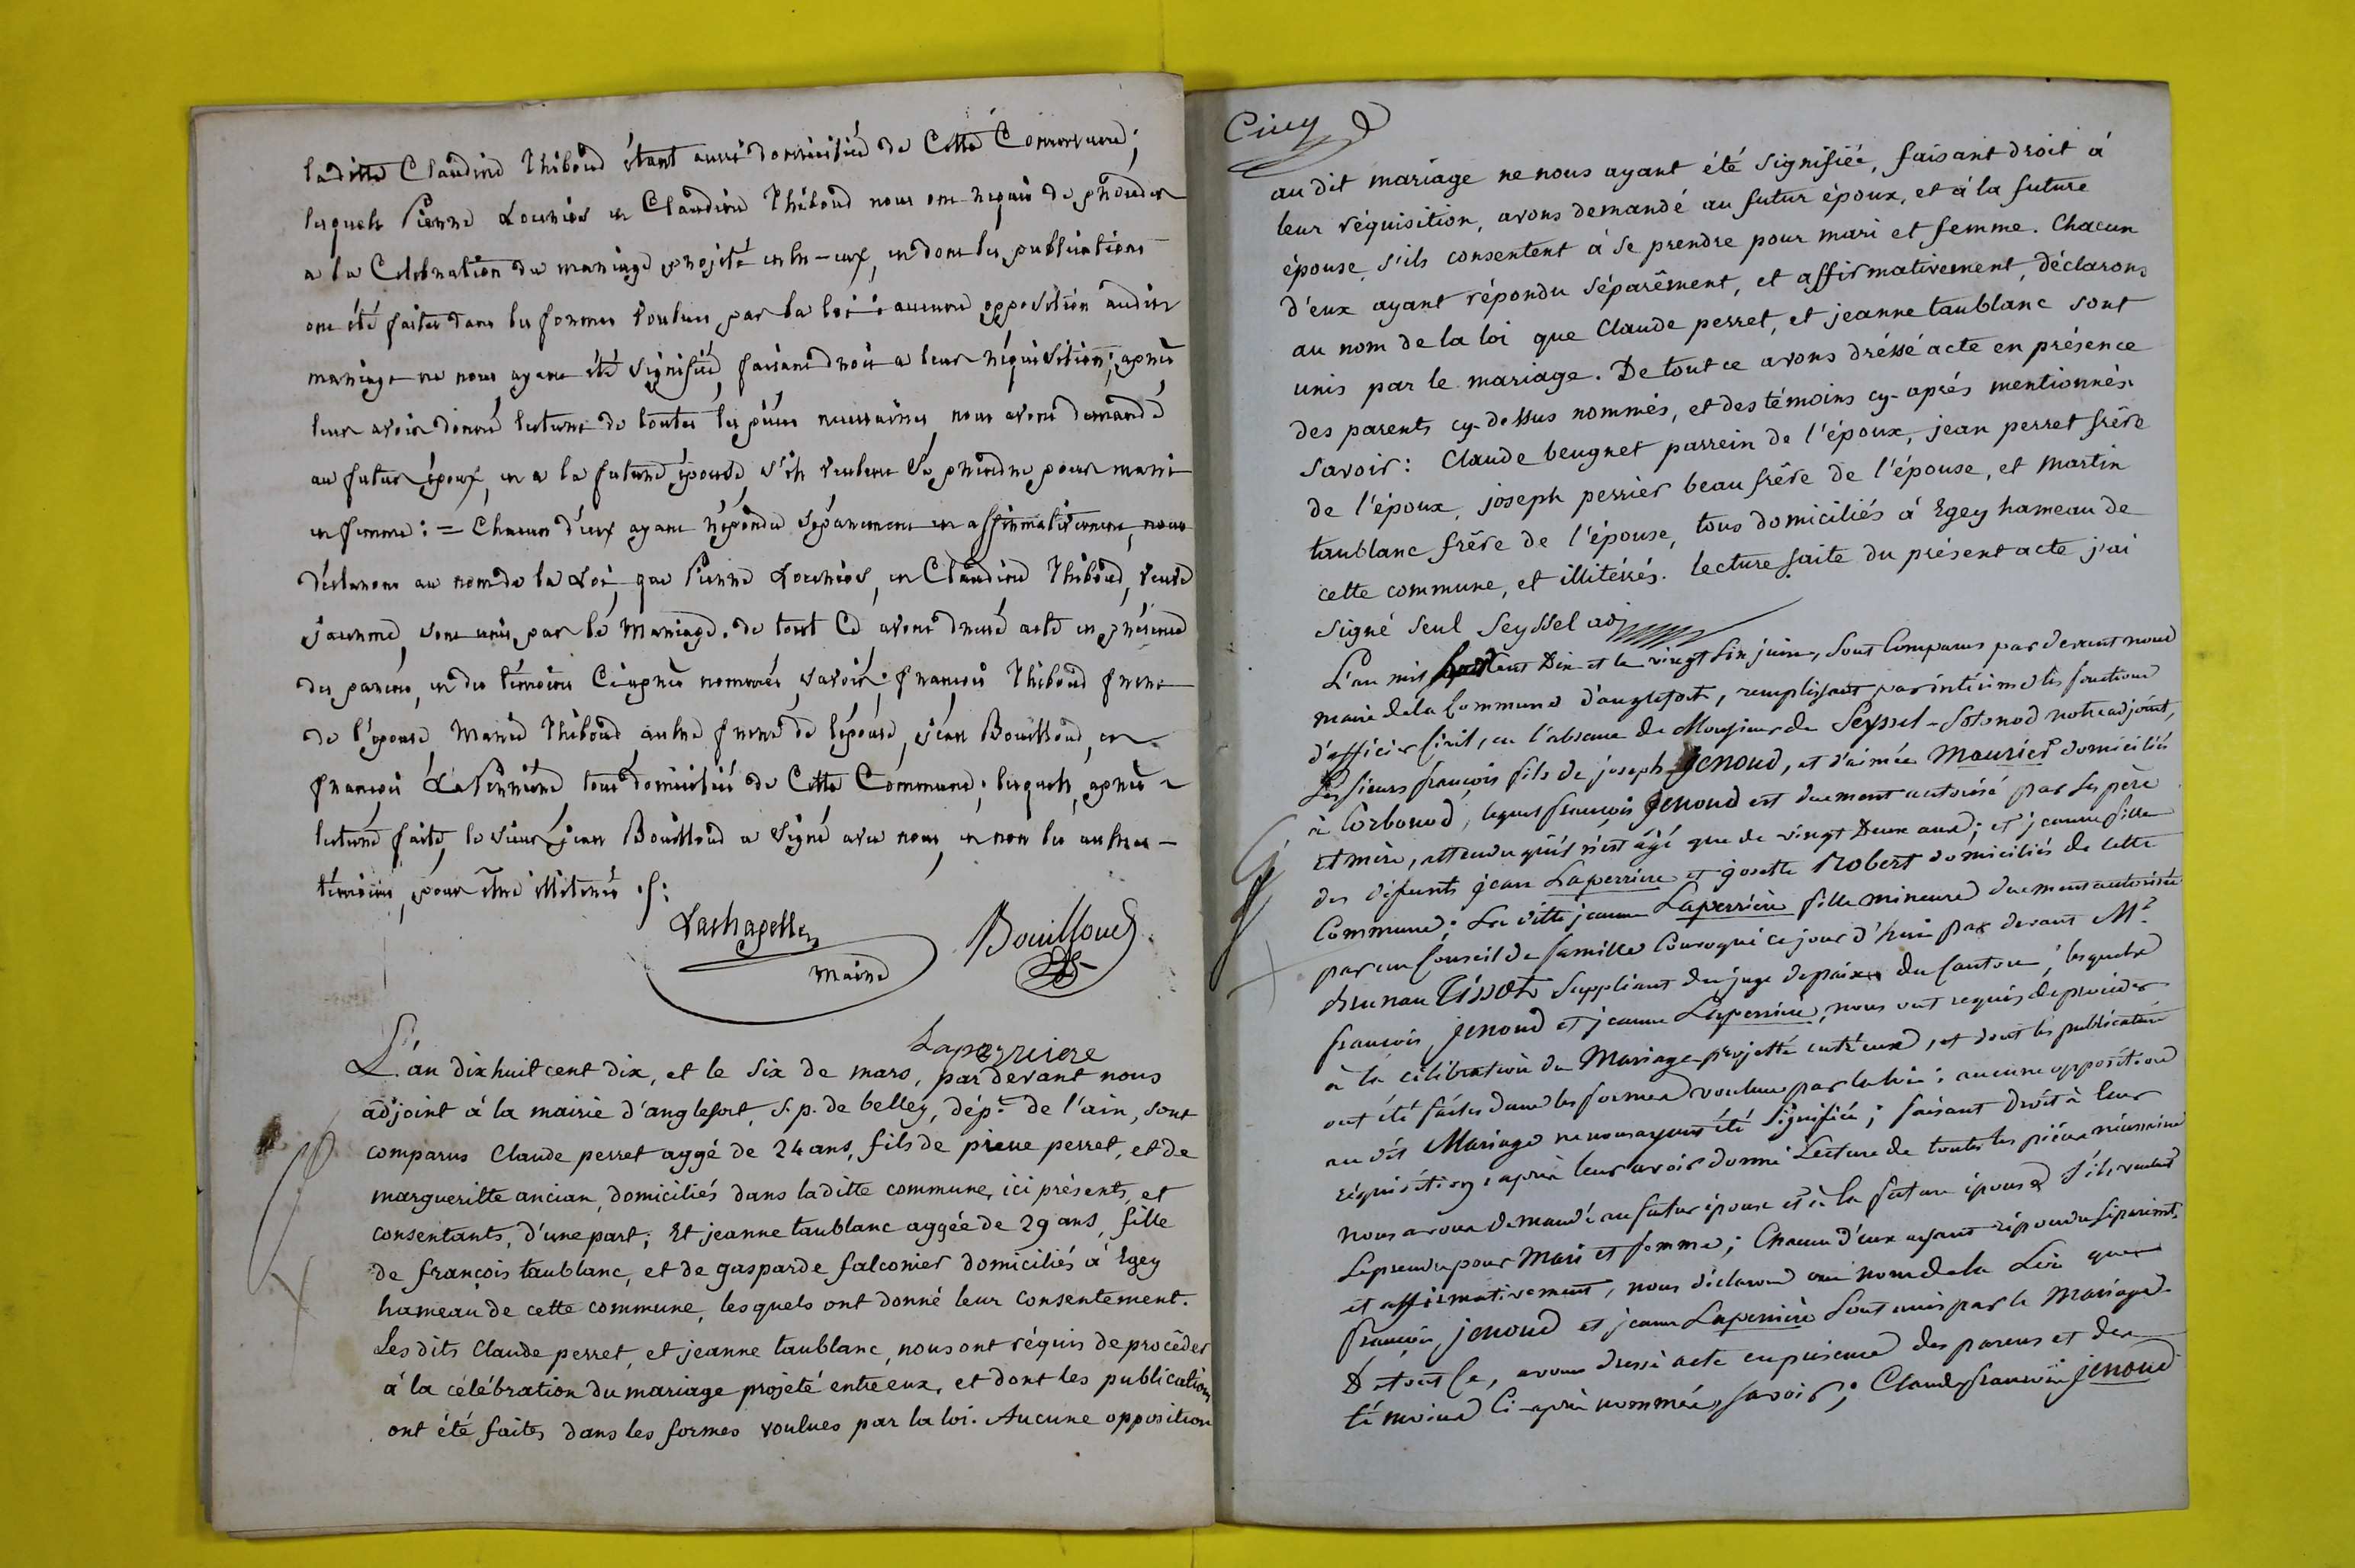 laditte Claudine Thiboud étant aussi domiciliée de Cette Commune;
lesquels Pierre Lournier et Claudine Thiboud nous ont requis de procéder
a la Célébration du mariage projeté entre-eux, et dont les publications
ont été faites dans les formes voulues par la loi: aucune opposition audit
mariage ne nous ayant été signifiée, faisant droit a leur réquisition; après
leur avoir donné lecture de toutes les pièces necessaires, nous avons demandé
au futur époux, et a la future épouse, s'ils veulent se prendre pour mari
et femme: = Chacun d'eux ayant répondu séparement et affirmativement, nous
déclarons au nom de la Loi, que Pierre, et Claudine Thiboud, veuve
, sont unis par le Mariage. de tout Ce avons dressé acte en présence
des parens, et des témoins Ciaprès nommés, savoir; françois Thiboud frere
de l'épouse, Thiboud autre frere de l'épouse, jéan Bouilloud, et
françois LaPerriere tous domiciliés de Cette Commune; lesquels, après
lecture faite, le sieur jean Bouilloud a signé avec nous, et non les autres
témoins, pour être illiterés ./:
Lachapelle
Maire
Bouilloud
Laperriere
L'an dix huit cent dix, et le six de mars, par devant nous
adjoint à la mairie d'anglefort, s. p. de belley, dépt. de l'ain, sont
comparus Claude perret aggé de 24 ans, fils de pierre perret, et de
marguerilte ancian, domiciliés dans laditte commune, ici présents, et
consentants, d'une part; Et jeanne taublanc aggée de 29 ans, fille
de françois taublanc, et de gasparde falconier domiciliés à Egey
hameau de cette commune, lesquels ont donné leur consentement.
Les dits Claude perret, et jeanne taublanc, nous ont réquis de procéder
à la célébration du mariage projeté entre eux, et dont les publications
ont été faites dans les formes voulues par la loi. Aucune opposition
au dit mariage ne nous ayant été signifiée, faisant droit à
leur réquisition, avons demandé au futur époux, et à la future
épouse, s'ils consentent à se prendre pour mari et femme. Chacun
d'eux ayant répondu séparêment, et affirmativement, déclarons
au nom de la loi que Claude perret, et jeanne taublanc sont
unis par le mariage. De tout ce avons dréssé acte en présence
des parents cy-dessus nommés, et des témoins cy-après mentionnés.
savoir: Claude beugnet parrein de l'époux, jean perret frêre
de l'époux, joseph perrier beau frêre de l'épouse, et martin
taublanc frêre de l'épouse, tous domiciliés à Egey hameau de
cette commune, et illitérrés. lecture faite du présent acte j'ai
signé seul Seyssel adj
L'an mil huit cent Dix et le vingt six juin, sont Comparus par devant nous
maire dela Commune d'anglefort, remplissant par intérime les fonctions
d'officier Civil, en l'absence de Monsieur de Seyssel-Sotonod notre adjoint,
Les sieurs françois fils de joseph jenoud, et d'aimée Maurier domiciliés
à Corbonod, lequel françois jenoud est duement autorisé par ses père
et mère, attendu qu'il n'est âgé que de vingt Deux ans; et jeanne fille
des défunts jean Laperriere et josette Robert domiciliés de cette
Commune; La ditte jeanne Laperrière fille mineure duement autorisée
par un Conseil de famille Convoqué ce jour d'hui par devant Mr.
Tissot suppléant du juge de paix du Canton; lesquels
françois jenoud et jeanne Laperrière, nous ont requis de procéder
à la célébration du Mariage projetté entr'eux, et dont les publications
ont été faites dans les formes voulues par la loi: aucune opposition
au dit Mariage ne nous ayant été signifiée; faisant droit à leur
réquisition, après leur avoir donné Lecture de toutes les pièces nécessaires
nous avons demandé au futur époux et à la future épouse s'ils veulent
se prendre pour Mari et femme; Chacun d'eux ayant répondu séparemt.
et affirmativement, nous déclarons au nom de la Loi que
françois jenoud et jeanne Laperrière sont unis par le Mariage.
De tout Ce, avons dressé acte en présence des parens et des
témoins Ci-après nommés, savoir; Claude françois jenoud